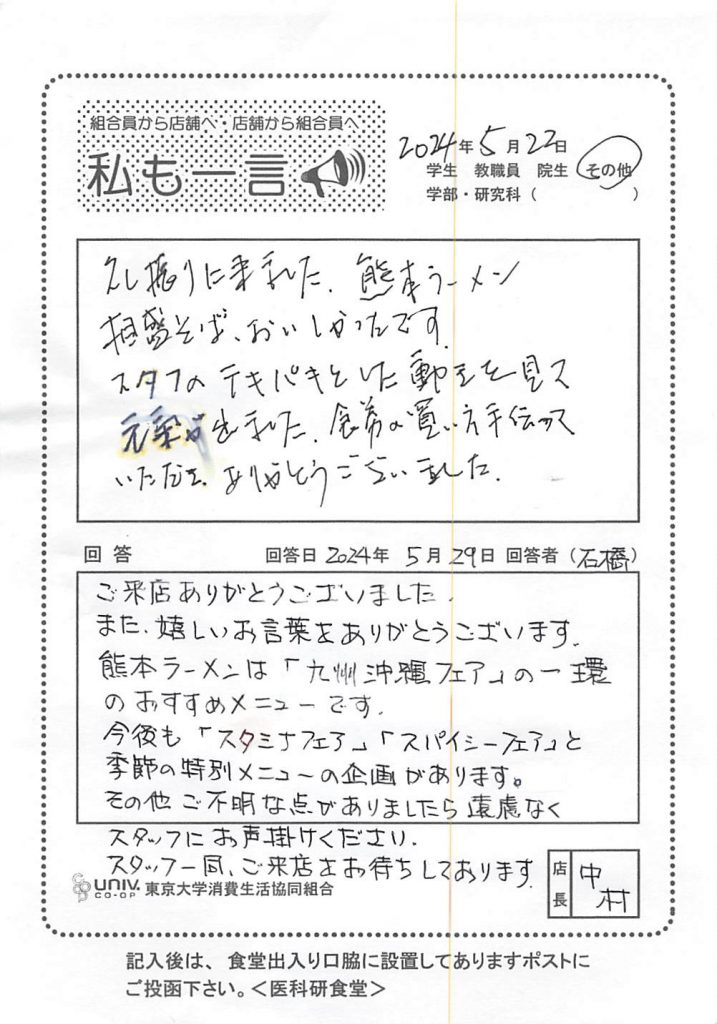 組合員から店舗へ・店舗から組合員へ
私も一言
2024年5月22日
学生 教職員 院生 その他
学部・研究科( )
久し振りに来ました。熊本ラーメン
相盛そば、おいしかったです。
スタフのテキパキとした動きを見て
元気が出ました。食券の買い方手伝って
いただき、ありがとうございました。
回答 回答日 2024年 5月29日 回答者(石橋)
ご来店ありがとうございました。
また、嬉しいお言葉をありがとうございます。
熊本ラーメンは「九州沖縄フェア」の一環
のおすすめメニューです。
今後も「スタミナフェア」「スパイシーフェア」と
季節の特別メニューの企画があります。
その他ご不明な点がありましたら遠慮なく
スタッフにお声掛けください。
スタッフ一同、ご来店をお待ちしております。
UNIV. CO-OP 東京大学消費生活協同組合
店長 中村
記入後は、食堂出入り口脇に設置してありますポストに
ご投函下さい。<医科研食堂>